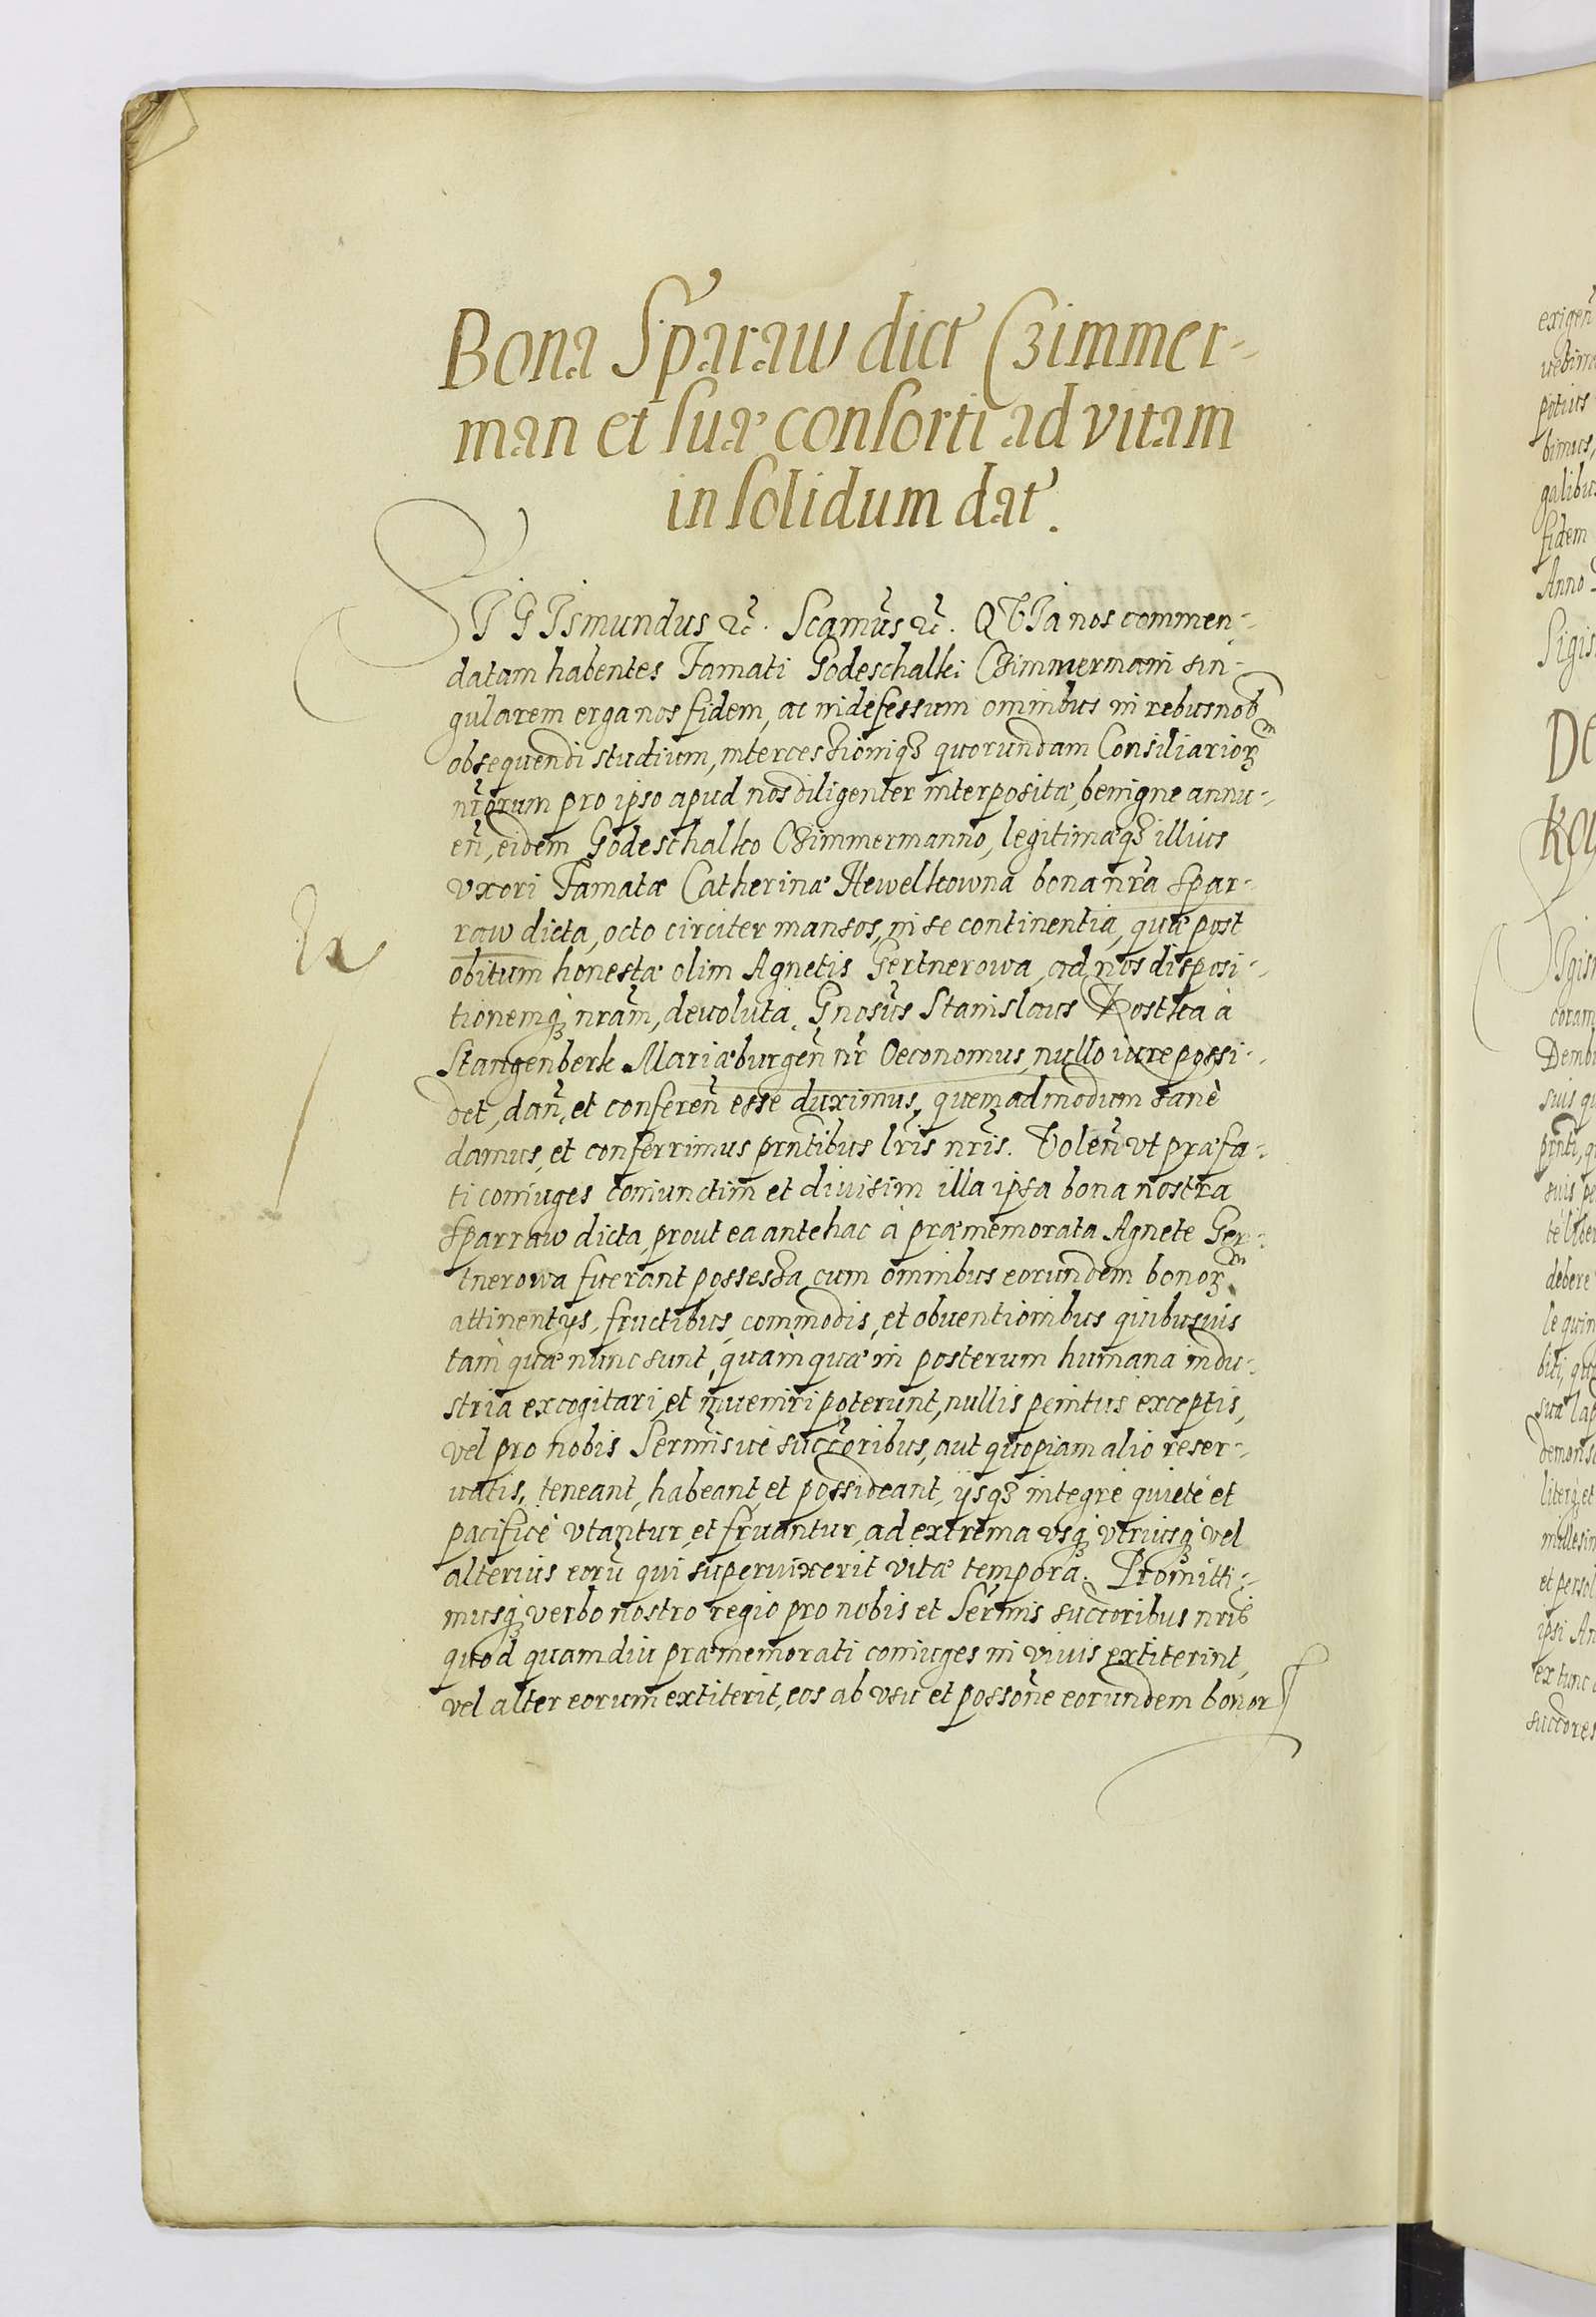 Bona Sparaw dict Czimmer-
man et suæ consorti ad vitam
in solidum dat.
SIGISmundus &c. Scamus &c. QVIa nos commen-
datam habentes Famati Godeschalki Czimmermani sin-
gularem erga nos fidem, ac indefessum omnibus in rebus nob
obsequendi studium, intercessioniqz quorundam Consiliarior
nrorum pro ipso apud nos diligenter interpositæ, benigne annu-
en, eidem Godeschalko Czimmermanno, legitimæqz illius
vxori Famatæ Catherinæ Hewelkowna bona nra Spar-
raw dicta, octo circiter mansos, in se continentia, quæ post
obitum honestæ olim Agnetis Gertnerowa, ad nos disposi-
tionemq nram, deuoluta, Gnosus Stanislaus Kostka à
Stangenberk Mariæburgen nr Oeconomus, nullo iure possi-
det, dan, et conferen esse duximus, quemadmodum sanè
damus, et conferrimus prntibus lris nris. Volen vt præfa-
ti coniuges coniunctim et diuisim illa ipsa bona nostra
Sparraw dicta, prout ea antehac à præmemorata Agnete Ger-
tnerowa fuerant possessa, cum omnibus eorundem bonor
attinentys, fructibus, commodis, et obuentionibus quibusuis
tam quæ nunc sunt, quam quæ in posterum humana indu-
stria excogitari, et inueniri poterunt, nullis penitus exceptis,
vel pro nobis Sermisuè succoribus, aut quopiam alio reser-
uatis, teneant, habeant, et possideant, ysqz integrè quietè et
pacificè vtantur, et fruantur, ad extrema vsq vtriusq vel
alterius eorū qui superuixerit vitæ tempora. Promitti-
musq verbo nostro regio pro nobis et Sermis succoribus nris
quod quamdiu præmemorati coniuges in viuis extiterint,
vel alter eorum extiterit, eos ab vsu et possone eorundem bonor